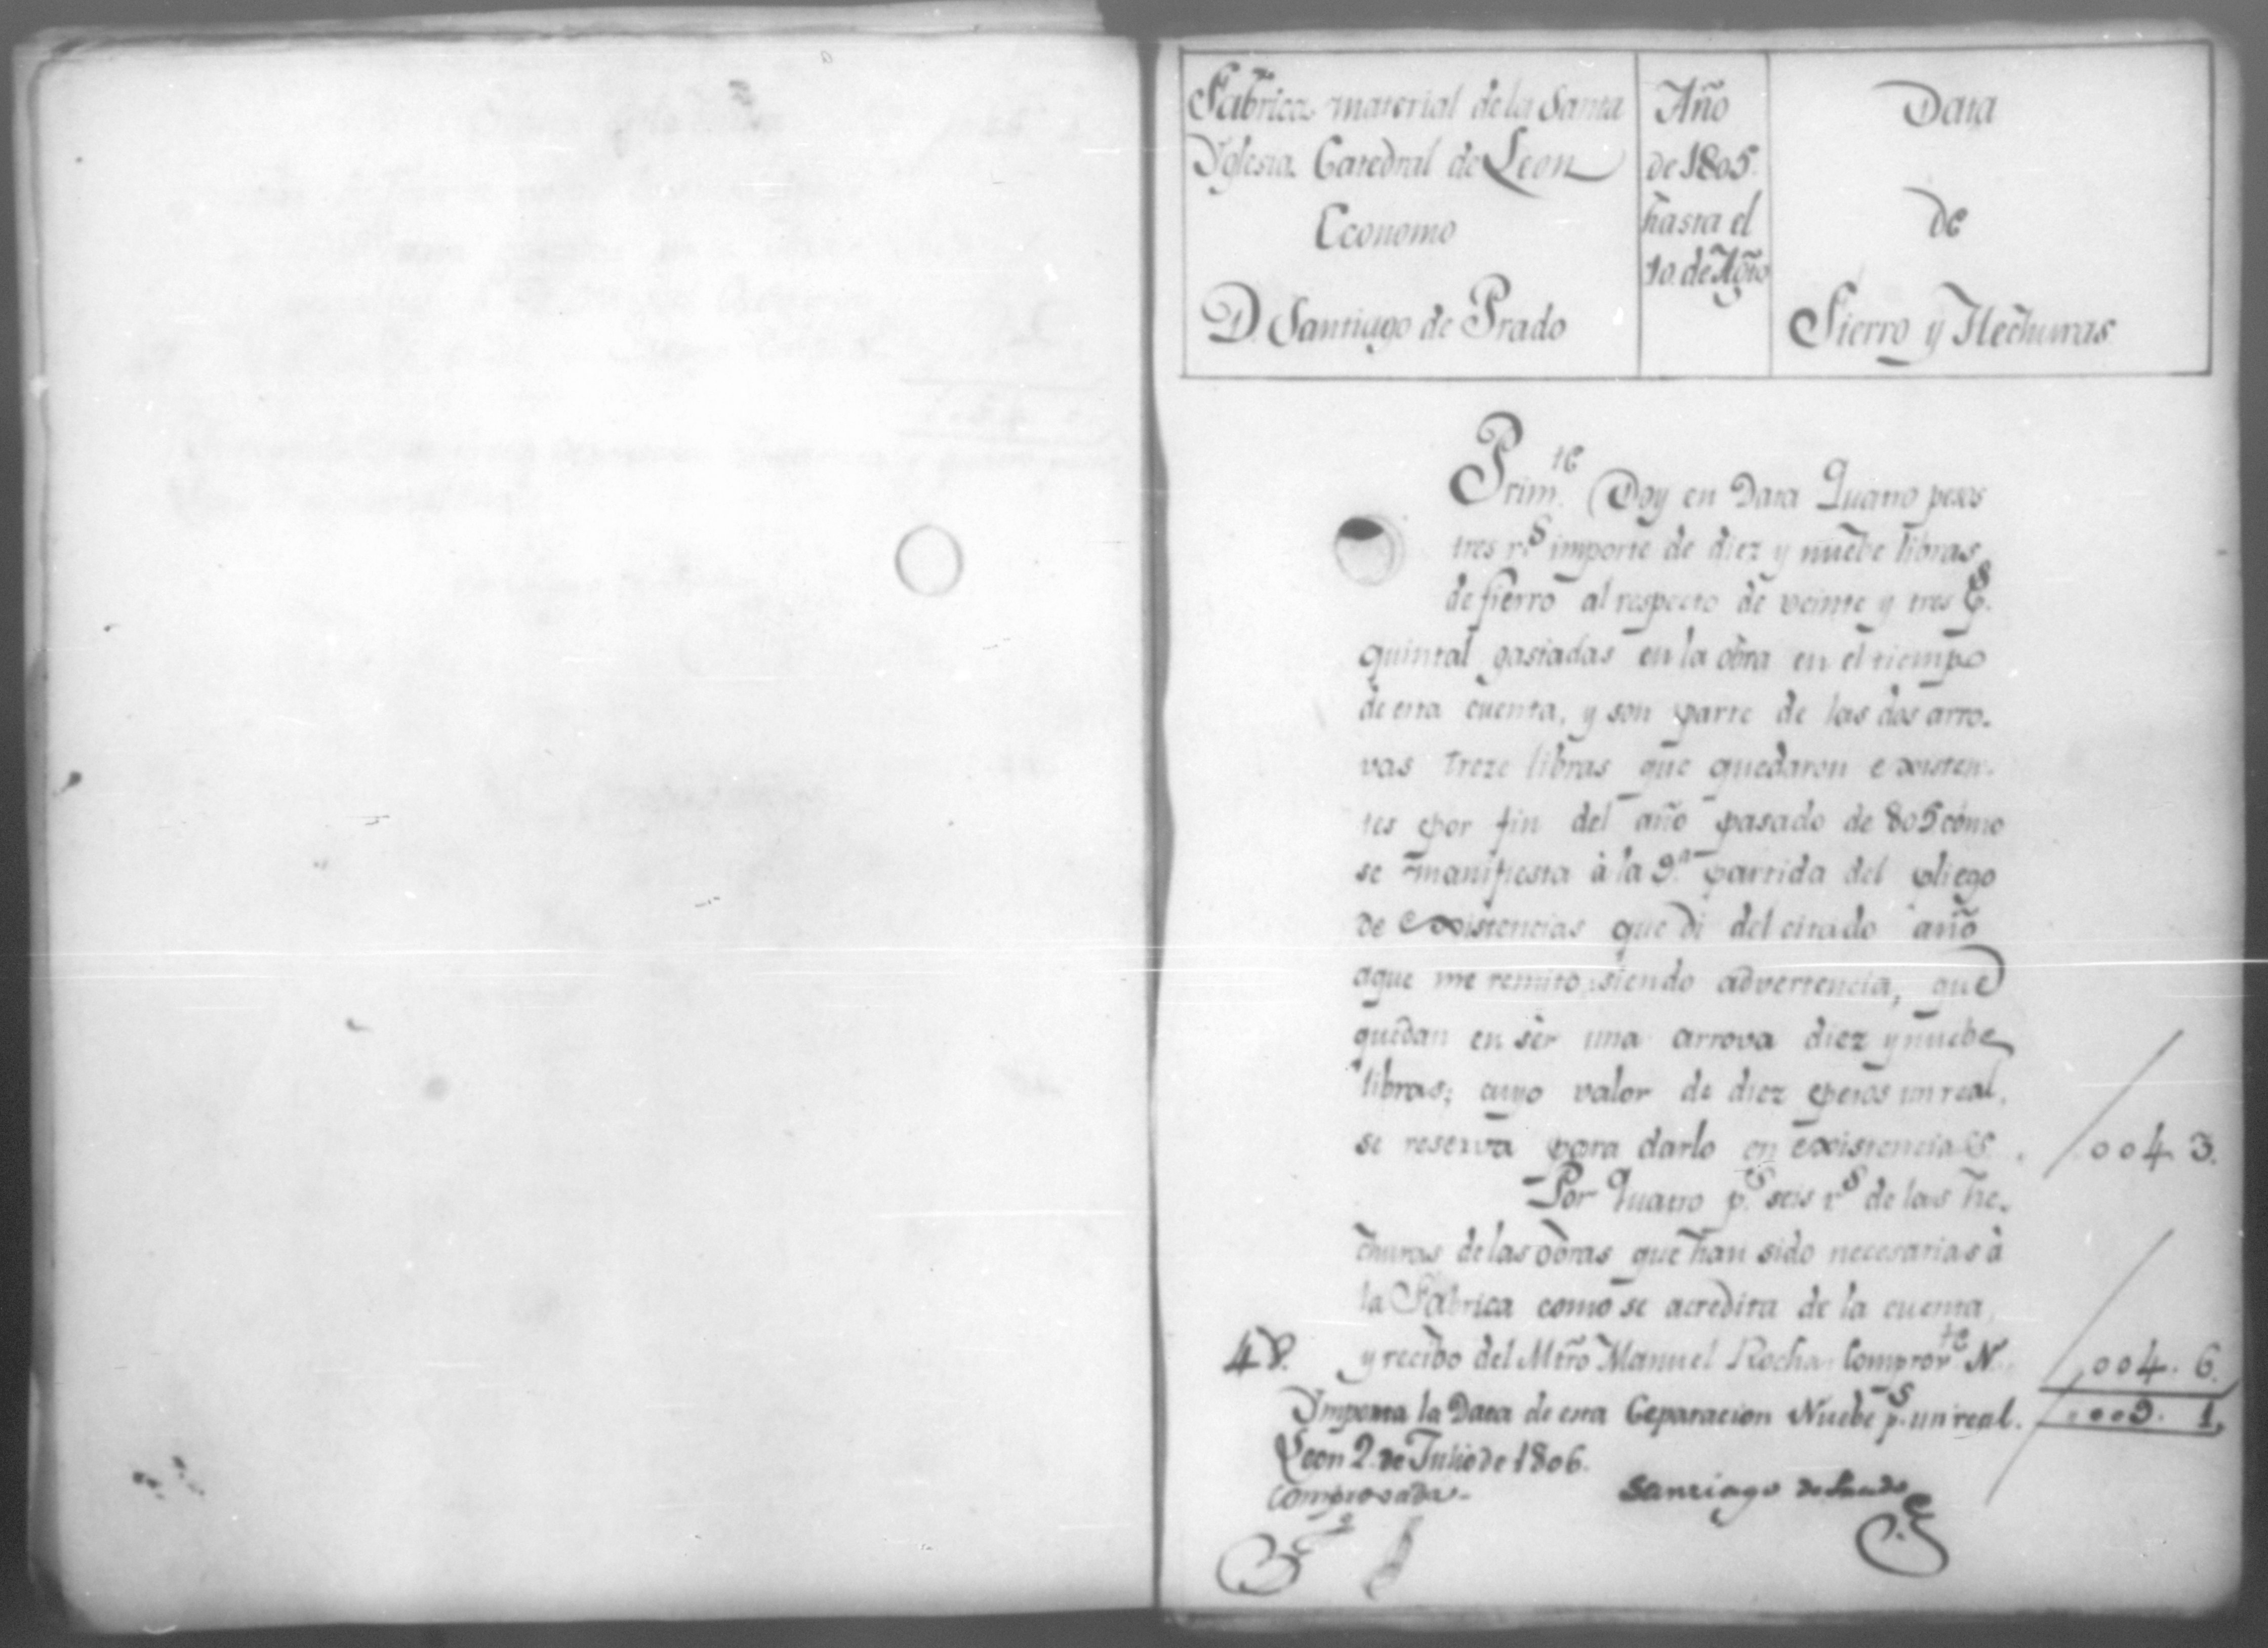 Fabrica material de la Santa
Yglesia Catedral de Leon
Economo
D. Santiago de Prado
Año
de 1805.
hasta el
10. de Agto
Data
de
Fierro y Hechuras
Prim.te Doy en Data Quatro pesos
tres r.s importe de diez y nuebe libras
de fierro al respecto de veinte y tres p.s
quintal gastadas en la obra en el tiempo
de esta cuenta, y son parte de las dos arro-
vas treze libras que quedaron existen-
tes por fin del año pasado de 805 como
se manifiesta à la 9.a partida del pliego
de existencias que di del citado año
aque me remito, siendo advertencia, que
quedan en sèr una arrova diez y nuebe
libras; cuyo valor de diez pesos un real,
se reserva para darlo en existencias. 004. 3.
Por Quatro p.s seis r.s de las he-
churas de las obras que han sido necesarias à
la Fabrica como se acredita de la cuenta,
48. y recibo del Mtro Manuel Rocha Compror.te N. 004. 6.
Ymporta la Data de esta Ceparacion Nuebe p.s un real. 009. 1.
Leon 2. de Julio de 1806.
Comprovada- Santiago de Prado